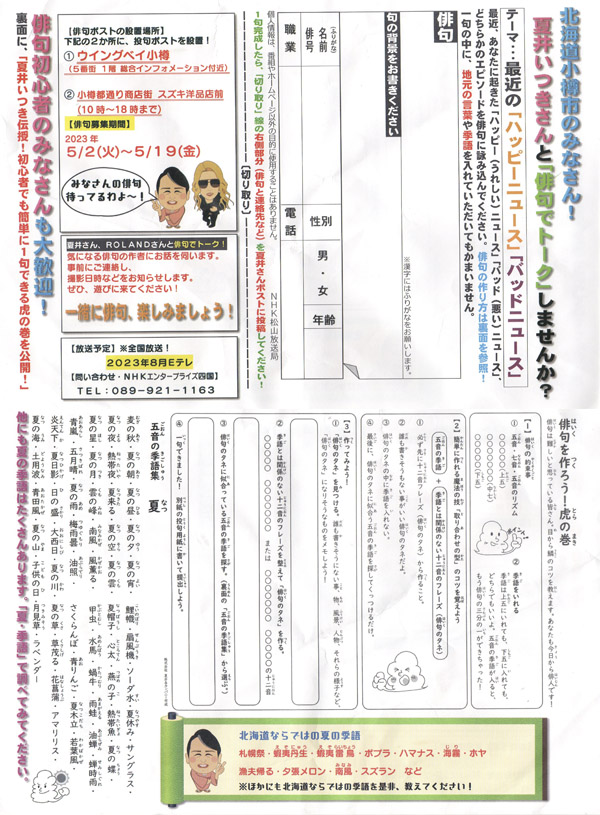 北海道小樽市のみなさん！
夏井いつきさんと「俳句でトーク」しませんか？
テーマ…最近の「ハッピーニュース」「バッドニュース」
最近、あなたに起きた「ハッピー（うれしい）ニュース」「バッド（悪い）ニュース」、
どちらかのエピソードを俳句に詠み込んでください。俳句の作り方は裏面を参照！
一句の中に、地元の言葉や季語を入れていただいてもかまいません。
俳句
※漢字にはふりがなをお願いします。
句の背景をお書きください
（ふりがな）
名前
俳号
性別
男・女
年齢
職業
電話
個人情報は、番組やホームページ以外の目的に使用することはありません。
NHK松山放送局
1句完成したら、「切り取り」線の右側部分（俳句と連絡先など）を夏井さんポストに投稿してください！
【切り取り】
【俳句ポストの設置場所】
下記の2か所に、投句ポストを設置！
① ウイングベイ小樽
（5番街 1階 総合インフォメーション付近）
② 小樽都通り商店街 スズキ洋品店前
（10時〜18時まで）
【俳句募集期間】
2023年
5/2(火)〜5/19(金)
みなさんの俳句
待ってるわよ〜！
夏井さん、ROLANDさんと俳句でトーク！
気になる俳句の作者にお話を伺います。
事前にご連絡し、
撮影日時などをお知らせします。
ぜひ、遊びに来てください！
一緒に俳句、楽しみましょう！
【放送予定】※全国放送！
2023年8月Eテレ
【問い合わせ・NHKエンタープライズ四国】
TEL：089-921-1163
俳句初心者のみなさんも大歓迎！
裏面に、「夏井いつき伝授！初心者でも簡単に1句できる虎の巻を公開！」
俳句を作ろう！虎の巻
俳句は難しいと思っている皆さん。目から鱗のコツを教えます。あなたも今日から俳人です！
【1】俳句の約束事
① 五音・七音・五音のリズム
○○○○○（上五）
○○○○○○○（中七）
○○○○○（下五）
② 季語をいれる
季語は上五にいれても、下五に入れても、
どちらでもいいよ。五音の季語が入ると、
もう俳句の三分の一ができちゃった！
【2】簡単に作れる魔法の技「取り合わせの型」のコツを覚えよう
五音の季語 ＋ 季語とは関係のない十二音のフレーズ（俳句のタネ）
① 必ず先に十二音フレーズ（俳句のタネ）から作ること。
② 誰も書きそうもない事がいい俳句のタネだよ。
③ 俳句のタネの中に季語を入れない。
④ 最後に、俳句のタネに似合う五音の季語を探してくっつけるだけ。
【3】作ってみよう！
① 「俳句のタネ」を見つける。誰も書きそうにない事、物、風景、人物、それらの様子など、
「俳句のタネ」になりそうなものをメモしよう！
② 季語とは関係のない十二音のフレーズを整えて「俳句のタネ」を作る。
または
の十二音
③ 俳句のタネに似合っている五音の季語を探す。（裏面の「五音の季語集」から選ぶ）
④ 一句できました！ 別紙の投句用紙に書いて提出しよう。
五音の季語集 夏
麦の秋・夏の朝・夏の昼・夏の宵・
夏の夜・熱帯夜・夏来る・夏の空・夏の雲・
夏の星・夏の月・雲の峰・南風・風薫る・
青嵐・五月晴・夏の雨・梅雨曇・油照・
炎天下・夏日影・日の盛・大西日・夏の川・
夏の海・土用波・青田風・夏の山・子供の日・
鯉幟・扇風機・ソーダ水・夏休み・サングラス・
夏帽子・心太・燕の子・熱帯魚・夏の蝶・
甲虫・水馬・蝸牛・雨蛙・油蝉・蝉時雨・
さくらんぼ・青りんご・夏木立・若葉風・
夏の草・草茂る・花菖蒲・アマリリス・
月見草・ラベンダー
他にも夏の季語はたくさんあります。「夏・季語」で調べてみてください。
北海道ならではの夏の季語
札幌祭・蝦夷丹生・蝦夷雷鳥・ポプラ・ハマナス・海霧・ホヤ
漁夫帰る・夕張メロン・南風・スズラン など
※ほかにも北海道ならではの季語を是非、教えてください！